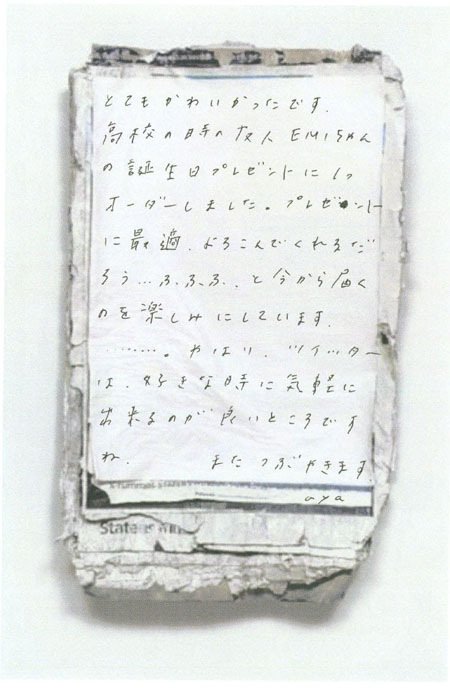 とてもかわいかったです.
高校の時の友人EMIちゃん
の誕生日プレゼントに1つ
オーダーしました。プレゼント
に最適.よろこんでくれるだ
ろう…ふ.ふ.ふ..と今から届く
のを楽しみにしています.
………。やはり.ツイッター
は.好きな時に気軽に
出来るのが良いところです
ね.　またつぶやきます
aya
State is